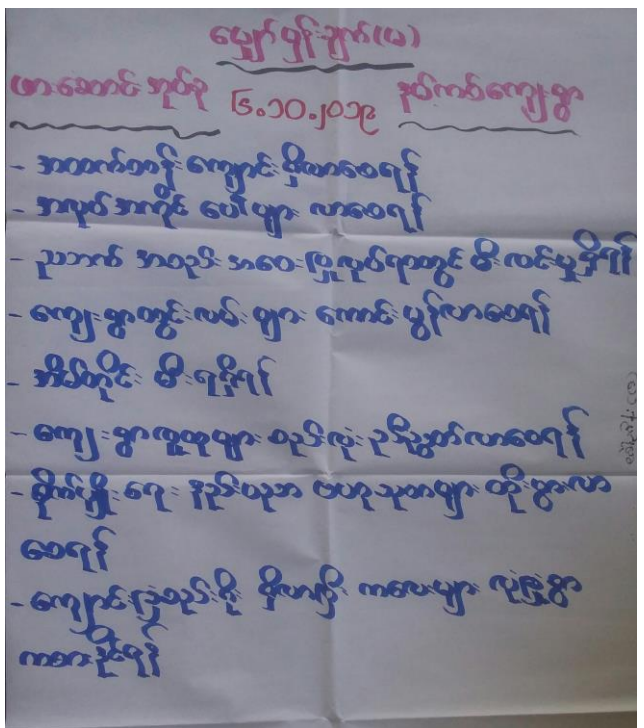 မျှော်မှန်းချက်(၈)
ဖားဆောင် အုပ်စု ၆.၁၀.၂၀၁၉ နတ်ကတ်ကျေးရွာ
- အထက်တန်း ကျောင်း ရှိလာစေရန်
- အလုပ်အကိုင် ပေါများ လာစေရန်
- ညဘက် အစည်းအဝေးပြုလုပ်ရာတွင် မီးလင်းမှုရှိရန်
- ကျေးရွာတွင်းလမ်းများ ကောင်းမွန်လာစေရန်
- အိမ်တိုင်း မီးရရှိရန်
- ကျေးရွာလူထုများ စည်းလုံးညီညွတ်လာစေရန်
- စိုက်ပျိုးရေး နည်းပညာ ဗဟုသုတများ တိုးပွားလာ
စေရန်
- ကျောင်းခြံစည်းရိုး ရှိလာပြီး ကလေးများ လုံခြုံစွာ
ကစားနိုင်ရန်